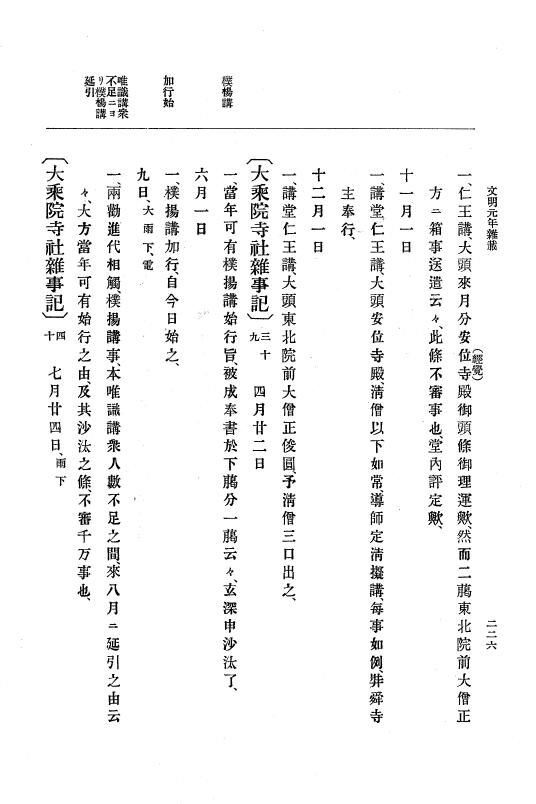 文明元年雜載
二二六
一、仁王講大頭來月分安位寺殿御頭條御理運歟、然而二﨟東北院前大僧正
(經覺)
方ニ箱事送遣云々、此條不審事也、堂內評定歟、
十一月一日
一、講堂仁王講、大頭安位寺殿、淸僧以下如常導師定淸擬講、每事如例、幷舜寺
主奉行、
十二月一日
一、講堂仁王講、大頭東北院前大僧正俊圓、予淸僧三口出之、
〔大乘院寺社雜事記〕三十九 四月廿二日
樸楊講
一、當年可有樸揚講始行旨、被成奉書於下﨟分一﨟云々、玄深申沙汰了、
六月一日
加行始
一、樸揚講加行、自今日始之、
九日、大雨下、電
唯識講衆
不足ニヨ
リ樸楊講
延引
一、兩勸進代相觸、樸揚講事本唯識講衆人數不足之間、來八月ニ延引之由云
々、大方當年可有始行之由、及其沙汰之條、不審千万事也、
〔大乘院寺社雜事記〕四十 七月廿四日、雨下